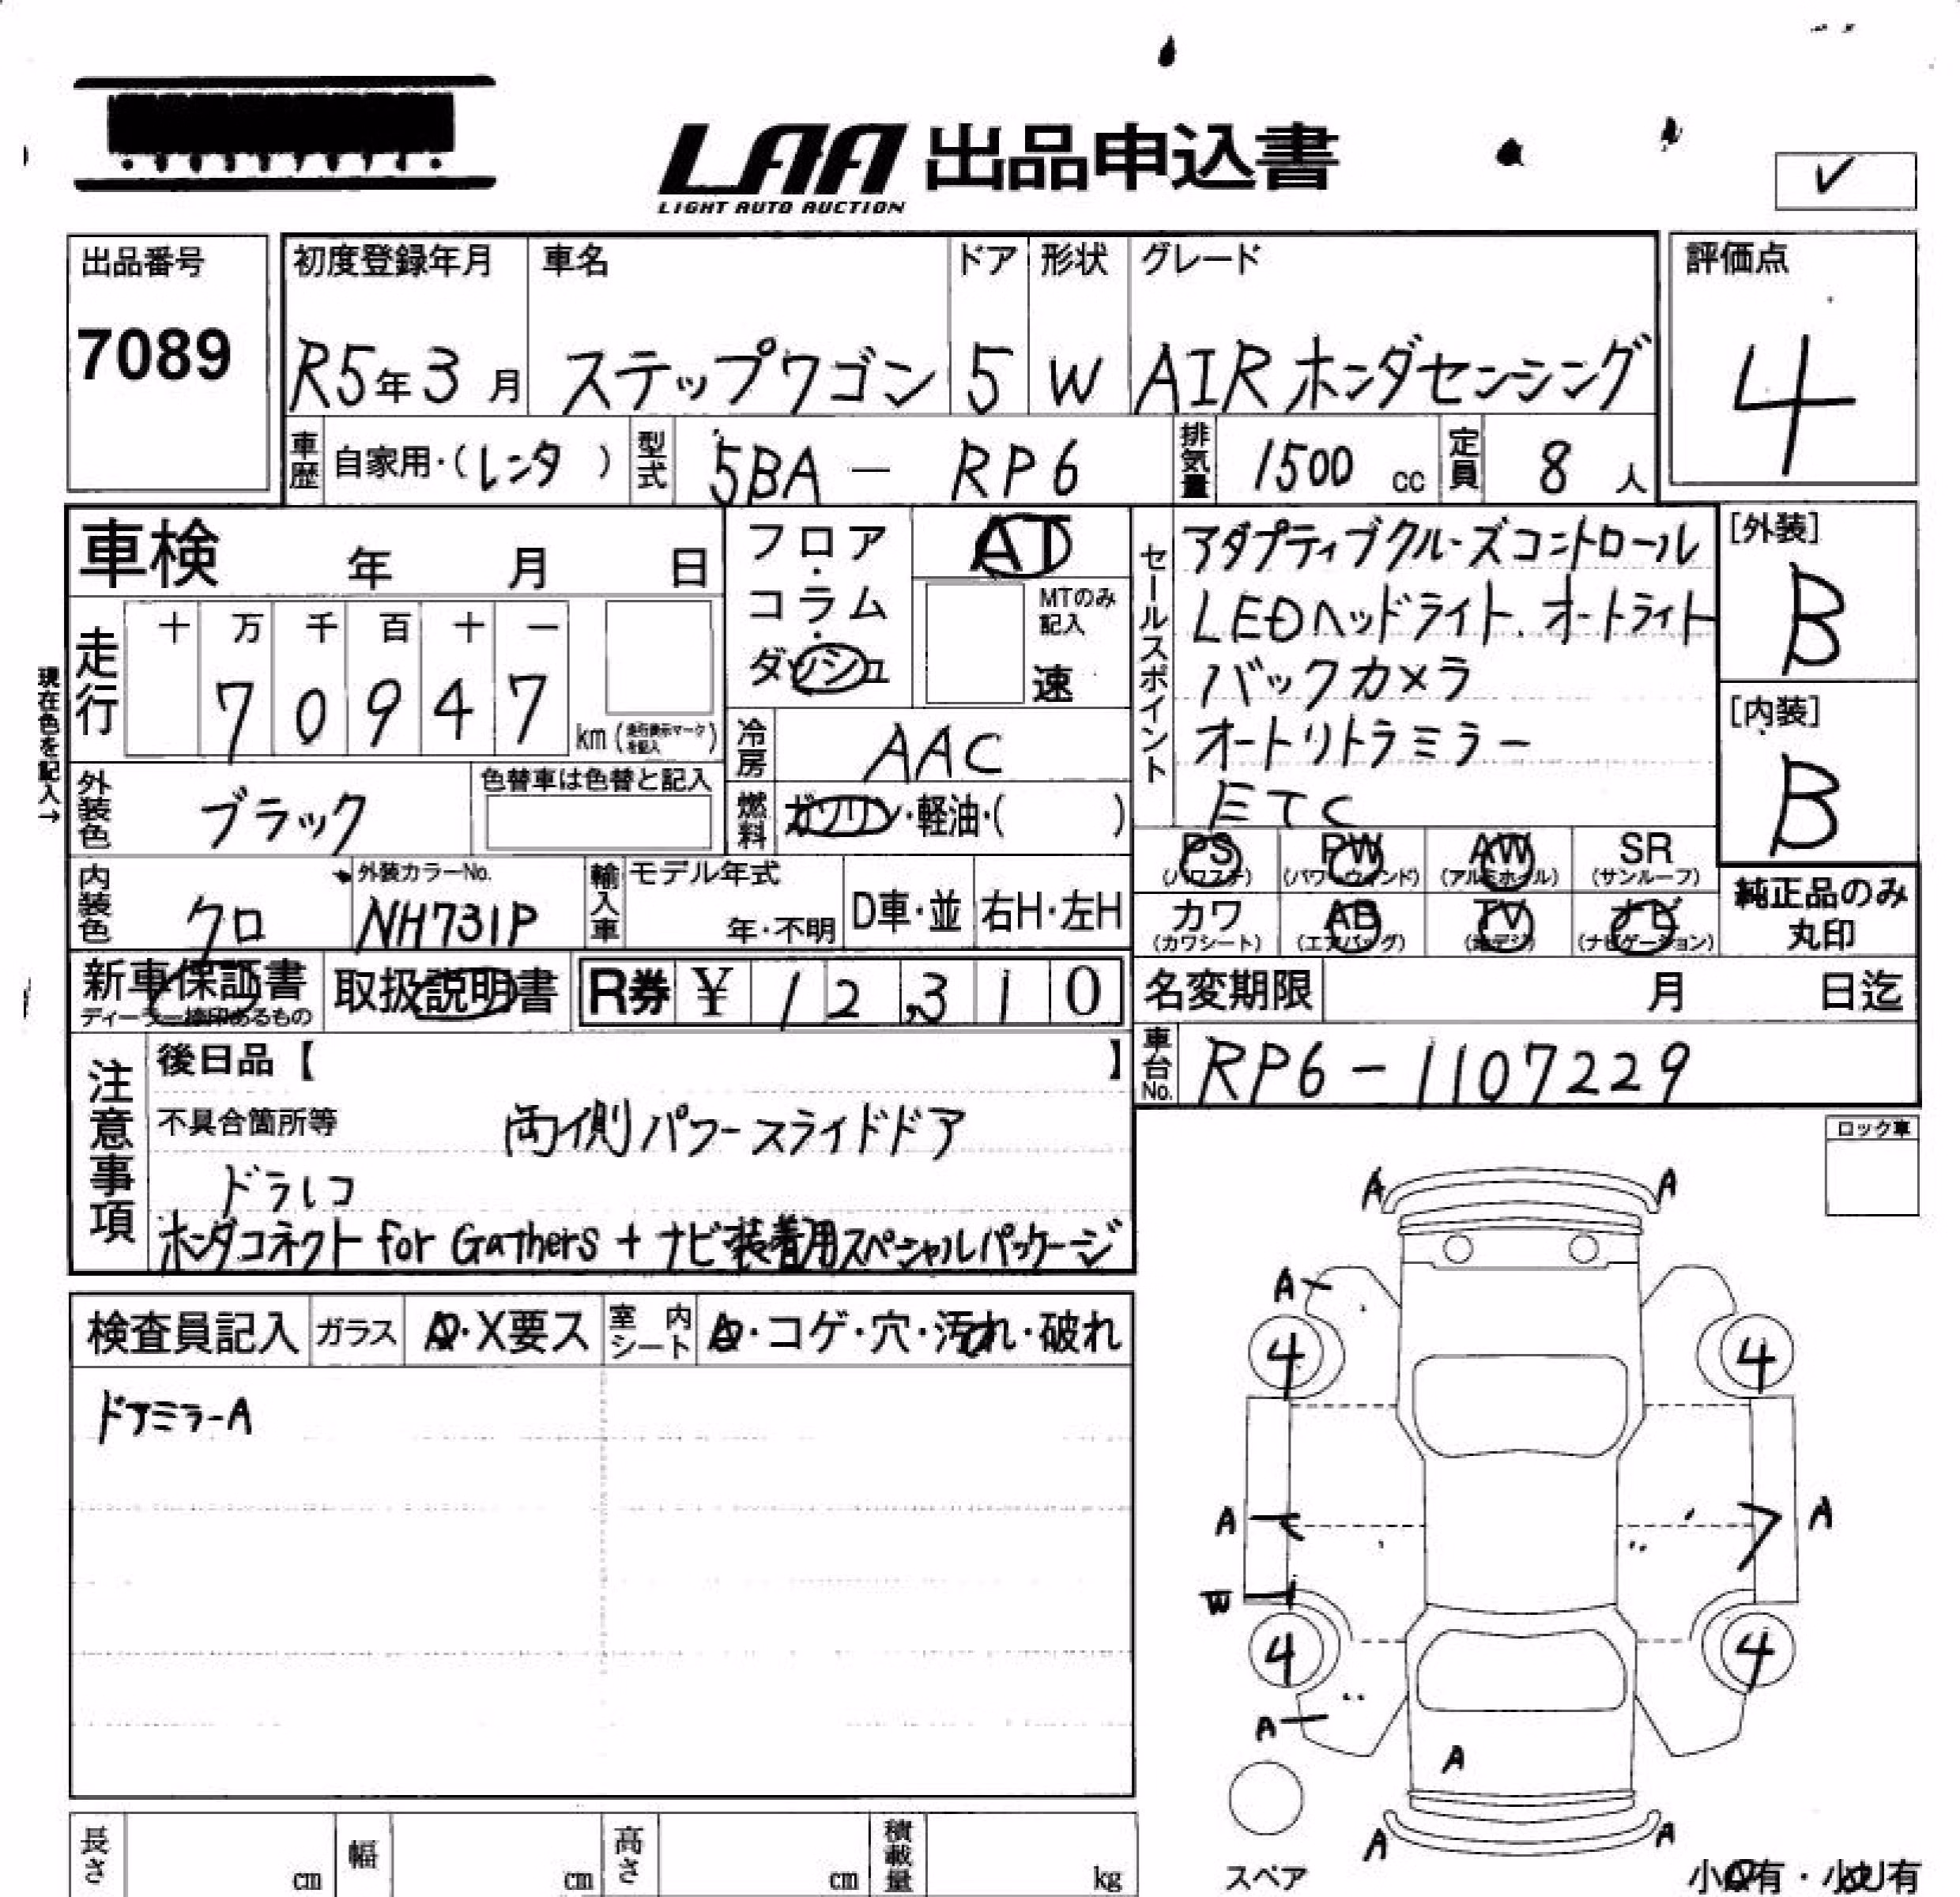 LAA 出品申込書
LIGHT AUTO AUCTION
✓
出品番号
7089
初度登録年月 車名 ドア 形状 グレード
R5年3月 ステップワゴン 5 W AIR ホンダセンシング
評価点
4
車歴 自家用・(レンタ) 型式 5BA - RP6 排気量 1500 cc 定員 8人
車検 年 月 日
現在色を記入→
走行 十 万 千 百 十 一
7 0 9 4 7 km (走行表示マークを記入)
フロア・コラム・ダッシュ
AT
MTのみ記入
速
冷房 AAC
燃料 ガソリン・軽油・( )
外装色 ブラック
色替車は色替と記入
内装色 クロ
外装カラーNo.
NH731P
輸入車 モデル年式
年・不明 D車・並 右H・左H
セールスポイント
アダプティブクルーズコントロール
LEDヘッドライト.オートライト
バックカメラ
オートリトラミラー
ETC
[外装]
B
[内装]
B
PS PW AW SR
(パワステ) (パワーウィンド) (アルミホイール) (サンルーフ)
カワ AB TV ナビ
(カワシート) (エアバッグ) (地デジ) (ナビゲーション)
純正品のみ
丸印
新車保証書 取扱説明書 R券 ¥ 12,310
ディーラー捺印あるもの
名変期限 月 日迄
車台No. RP6-1107229
注意事項
後日品【 】
不具合箇所等 両側パワースライドドア
ドラレコ
ホンダコネクト for Gathers + ナビ装着用スペシャルパッケージ
ロック車
検査員記入 ガラス A・X要ス 室内シート ・コゲ・穴・汚れ・破れ
ドアミラーA
A A
A
4 4
A A
W
4 4
A
A
A A
スペア
長さ cm 幅 cm 高さ cm 積載量 kg
小 有・小 有